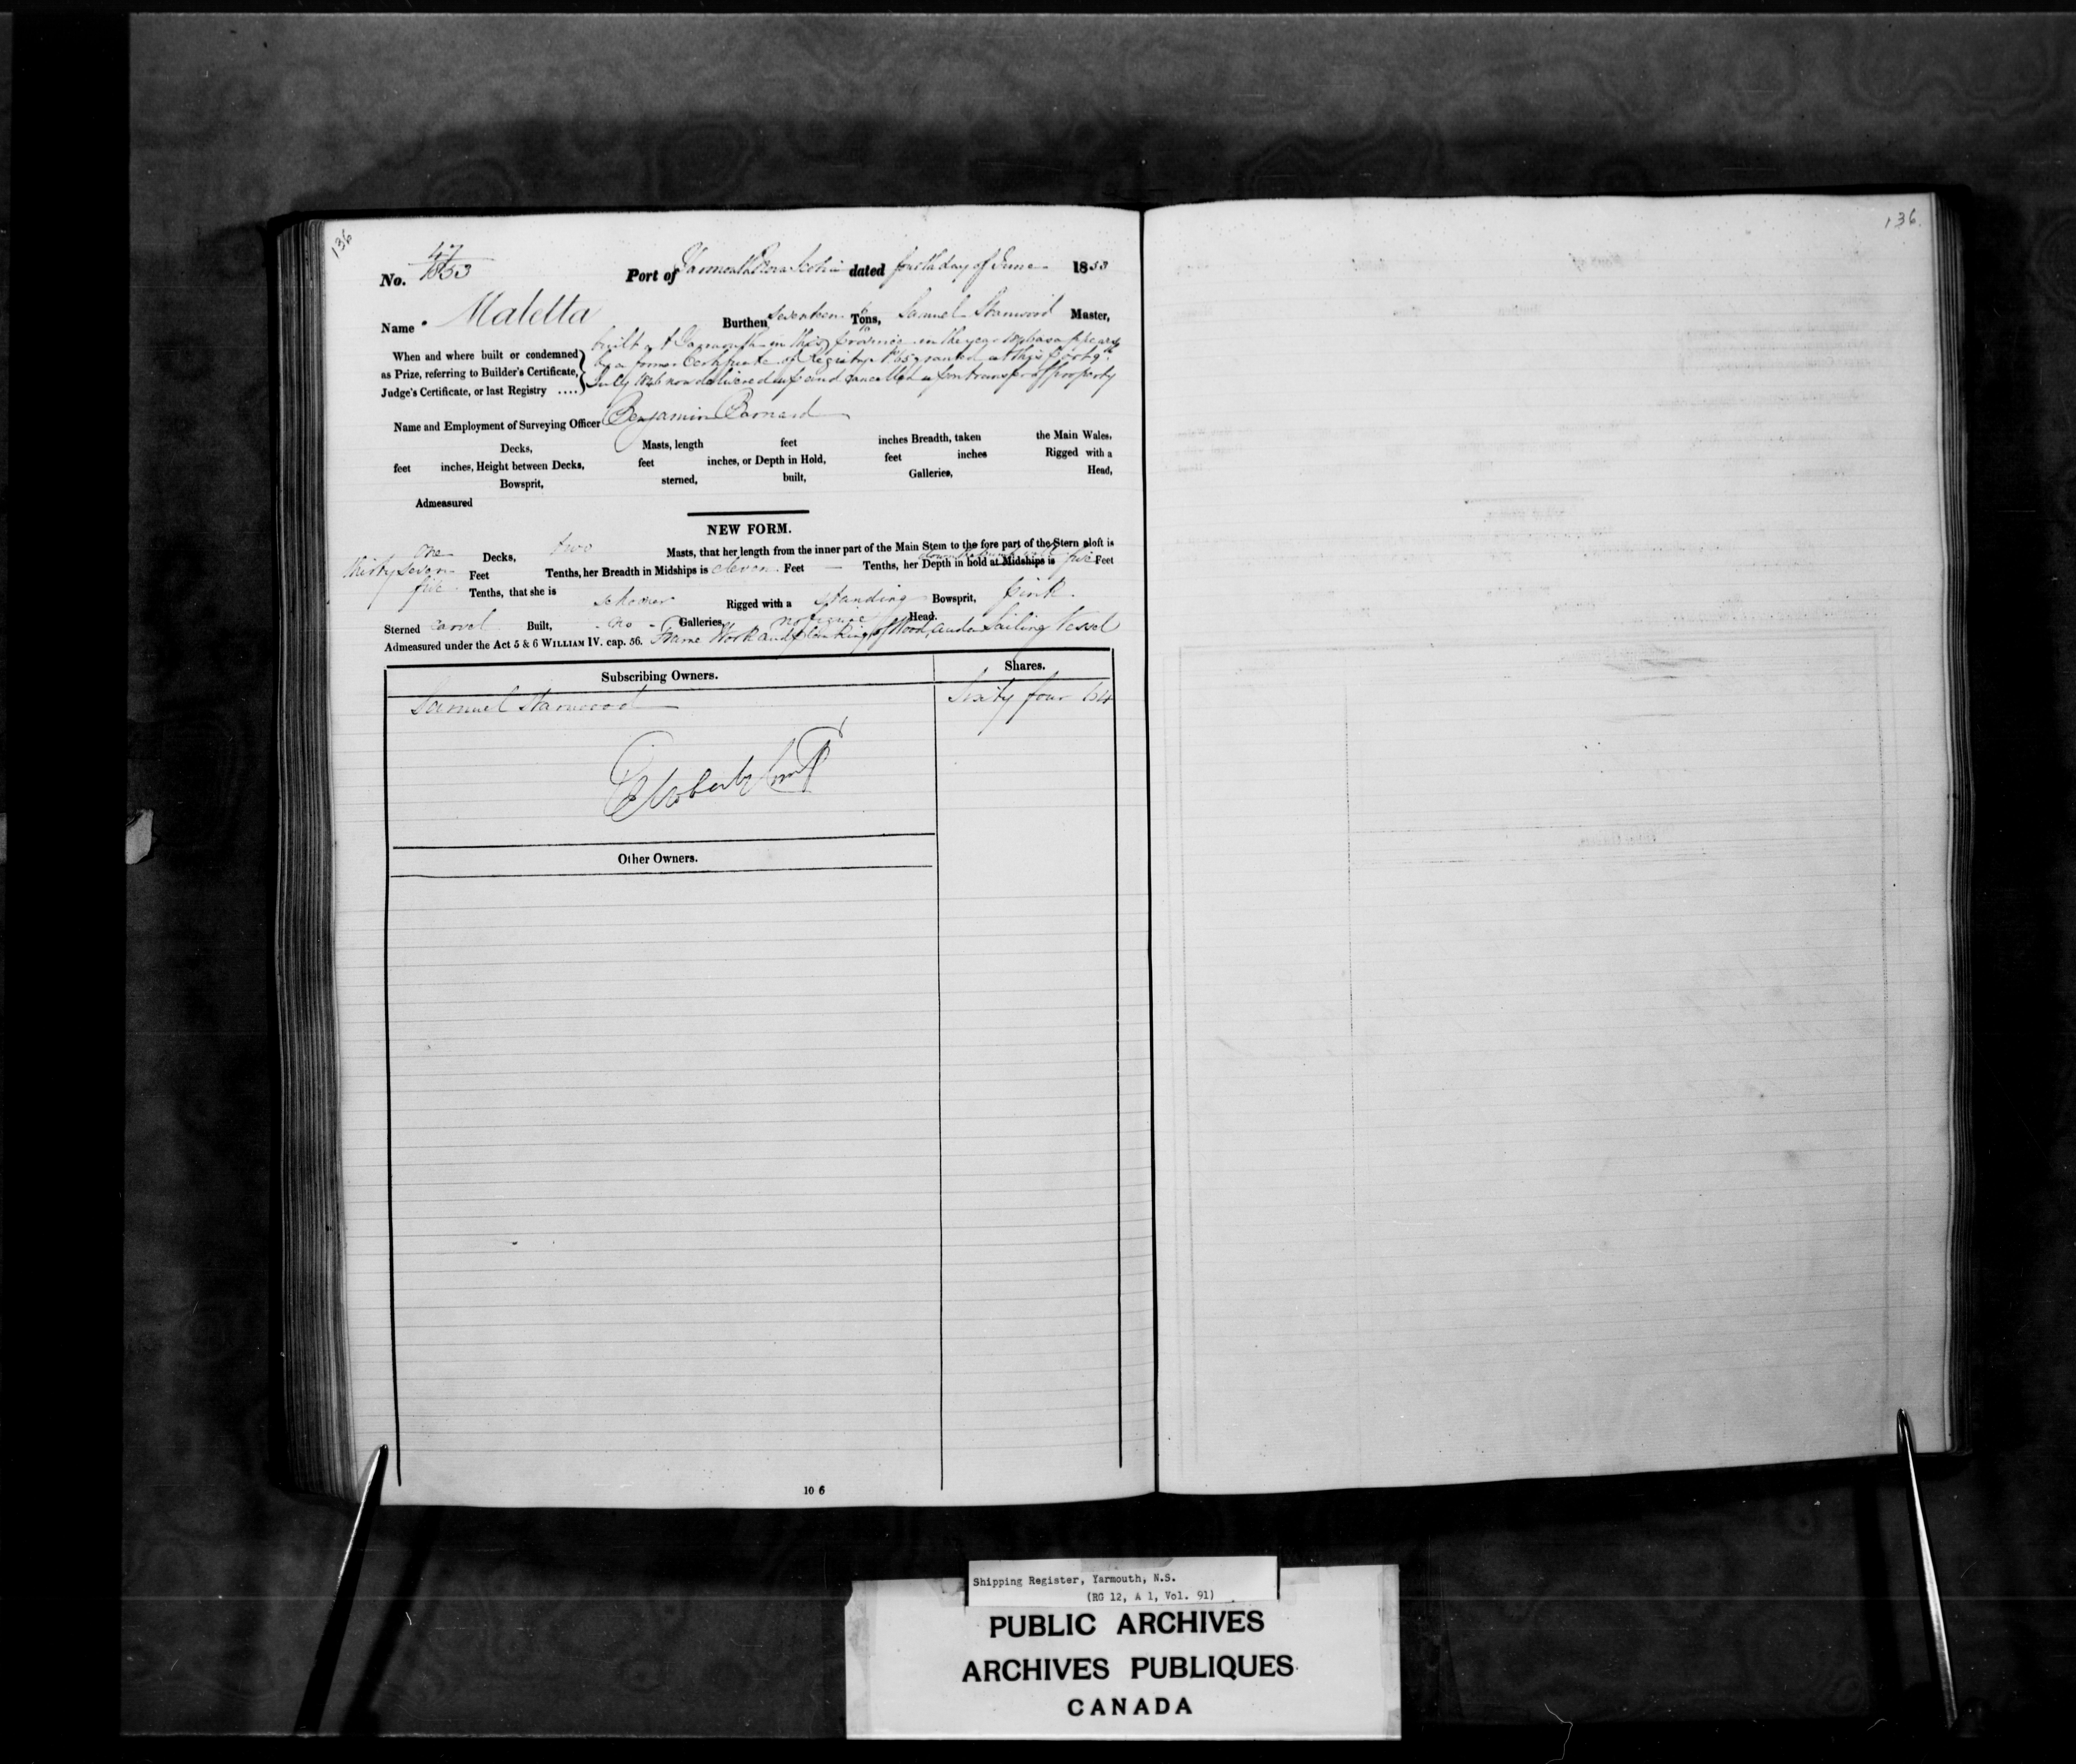 136
136.
No. 47/1853 Port of Yarmouth Nova Scotia dated fourth day of June 1853
Name Maletta Burthen Seventeen Tons, Samuel Stanwood Master,
built at Yarmouth in this Province in the year 1846 as appears
When and where built or condemned
as Prize, referring to Builder's Certificate,
Judge's Certificate, or last Registry ....
by a former Certificate of Registry granted at this Port 9th
July 1846 now delivered up and cancelled upon transfer of property
Name and Employment of Surveying Officer Benjamin Barnard
Decks, Masts, length feet inches Breadth, taken the Main Wales,
feet inches, Height between Decks, feet inches, or Depth in Hold, feet inches Rigged with a
Bowsprit, sterned, built, Galleries, Head,
Admeasured
NEW FORM.
one Decks, two Masts, that her length from the inner part of the Main Stem to the fore part of the Stern aloft is
thirty seven Feet five Tenths, her Breadth in Midships is eleven Feet — Tenths, her Depth in hold at Midships is five Feet
Tenths, that she is schooner Rigged with a standing Bowsprit, pink
Sterned carvel Built, no Galleries, no figure Head.
Admeasured under the Act 5 & 6 WILLIAM IV. cap. 56. Frame Work and planking of Wood, and a Sailing Vessel
Subscribing Owners. Shares.
Samuel Stanwood Sixty four 64
Other Owners.
10 6
Shipping Register, Yarmouth, N.S.
(RG 12, A 1, Vol. 91)
PUBLIC ARCHIVES
ARCHIVES PUBLIQUES
CANADA